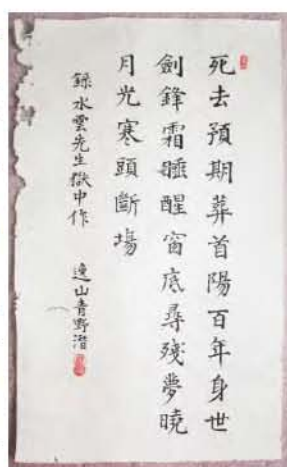 死去預期葬首陽百年身世
劍鋒霜睡醒窗底尋殘夢曉
月光寒頭斷場
錄水雲先生獄中作 逸山青野潛